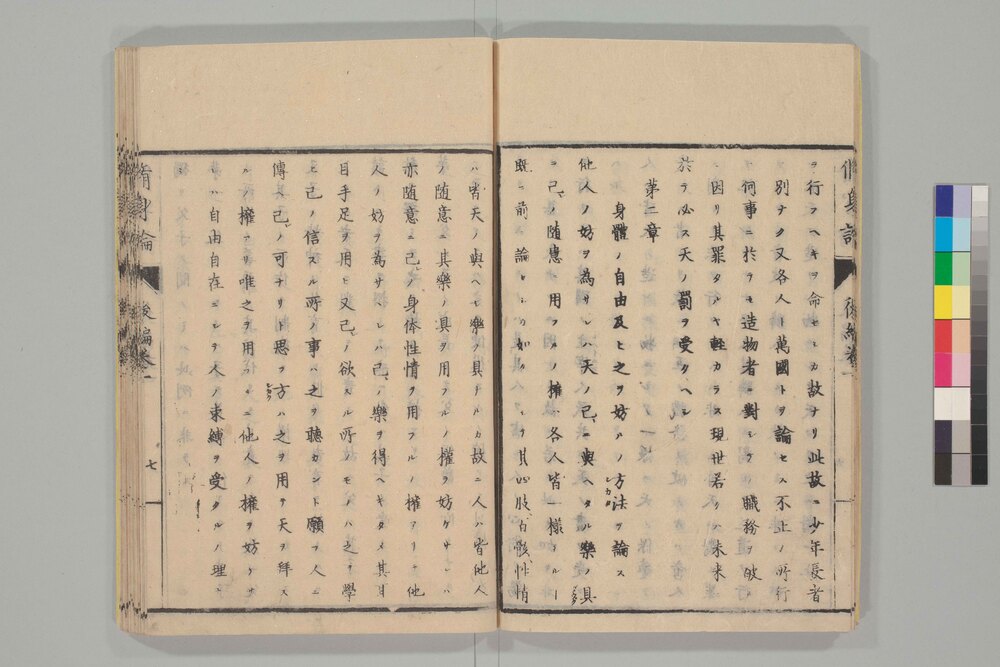 ヲ行フヘキヲ命セシカ故ナリ此故ニ少年長者
別チナク又各人ト萬國トヲ論セス不正ノ所行
何事ニ於テモ造物者ニ對シテノ職務ヲ破
因リ其罪タルヤ輕カラス現世若クハ未来
於テ必ス天ノ罰ヲ受クヘシ
第二章
身體ノ自由及ヒ之ヲ妨クルノ方法ヲ論ス
他人ノ妨ヲ為サレハ天ノ己ニ與ヘタル樂ノ具
己ノ随意ニ用フルノ權各人皆一様
既ニ前ニ論セシカ如ク其四肢百骸性情
ハ皆天ノ與ヘシ樂ノ具ナルカ故ニ人ハ皆他人
ノ随意ニ其樂ノ具ヲ用フルノ權ヲ妨ケサレハ
亦随意ニ己ノ身体性情ヲ用フルノ權アリテ他
人ノ妨ヲ為サレハ己ノ樂ヲ得ヘキタメ其耳
目手足ヲ用ヒ又己ノ欲スル所ノモノハ之ヲ學
ヒ己ノ信スル所ノ事ハ之ヲ聽カント願フ人ニ
傳其己ノ可ナリト思フ方ハ之ヲ用テ天ヲ拜ス
ルノ權アリ唯之ヲ用フルニ他人ノ權ヲ妨ケサ
ハ自由自在ニシテ人ノ束縛ヲ受クルノ理
脩身論 後編卷一
七